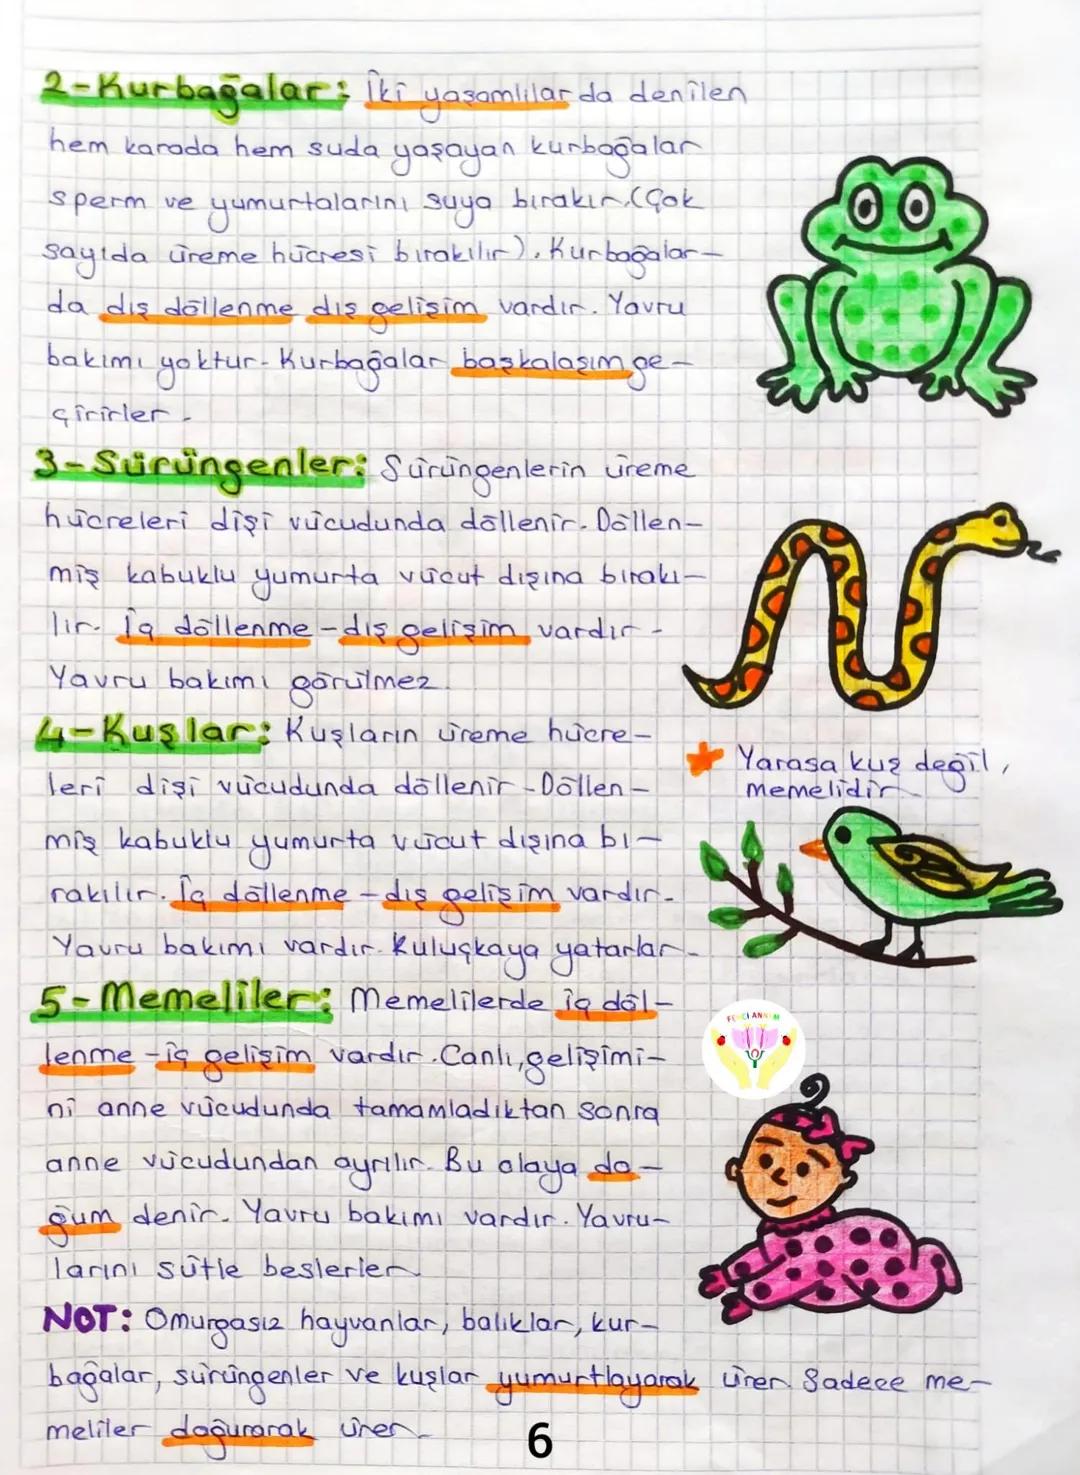 2-Kurbağalar: İki yaşamlılar da denilen
hem karada hem suda yaşayan kurbağalar
sperm ve yumurtalarını suya bırakır.(Çok
sayıda üreme hücresi bırakılır). Kurbağalar-
da dış döllenme dış gelişim vardır. Yavru
bakımı yoktur. Kurbağalar başkalaşım ge-
çirirler.
3-Sürüngenler: Sürüngenlerin üreme
hücreleri dişi vücudunda döllenir. Döllen-
miş kabuklu yumurta vücut dışına bırakı-
lır. İç döllenme-dış gelişim vardır.
Yavru bakımı görülmez.
4-Kuşlar: Kuşların üreme hücre-
leri dişi vücudunda döllenir. Döllen-
miş kabuklu yumurta vücut dışına bı-
rakılır. İç döllenme-dış gelişim vardır.
Yavru bakımı vardır. Kuluçkaya yatarlar.
Yarasa kuş değil,
memelidir.
5-Memeliler: Memelilerde iç döl-
lenme-iç gelişim vardır. Canlı, gelişimi-
ni anne vücudunda tamamladıktan sonra
anne vücudundan ayrılır. Bu olaya do-
ğum denir. Yavru bakımı vardır. Yavru-
larını sütle beslerler.
FENCİ ANNEM
NOT: Omurgasız hayvanlar, balıklar, kur-
bağalar, sürüngenler ve kuşlar yumurtlayarak ürer. Sadece me-
meliler doğurarak ürer.
6